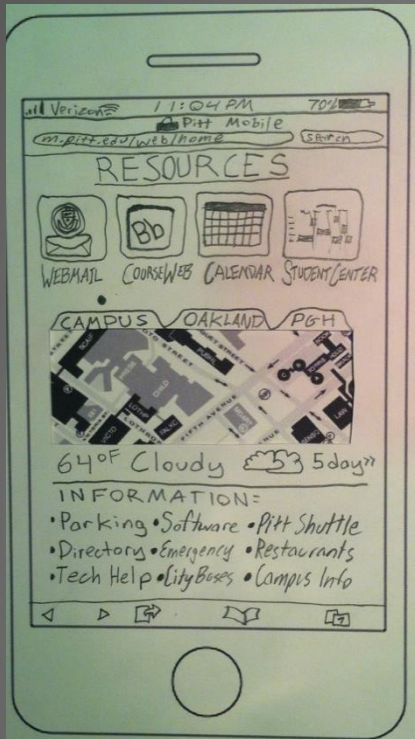 Verizon 11:04 PM 70%
Pitt Mobile
m.pitt.edu/web/home search
RESOURCES
Bb
WEBMAIL COURSEWEB CALENDAR STUDENT CENTER
CAMPUS OAKLAND PGH
FIFTH AVENUE
LAW
64°F Cloudy 5day»
INFORMATION:
•Parking •Software •Pitt Shuttle
•Directory •Emergency •Restaurants
•Tech Help •City Buses •Campus Info